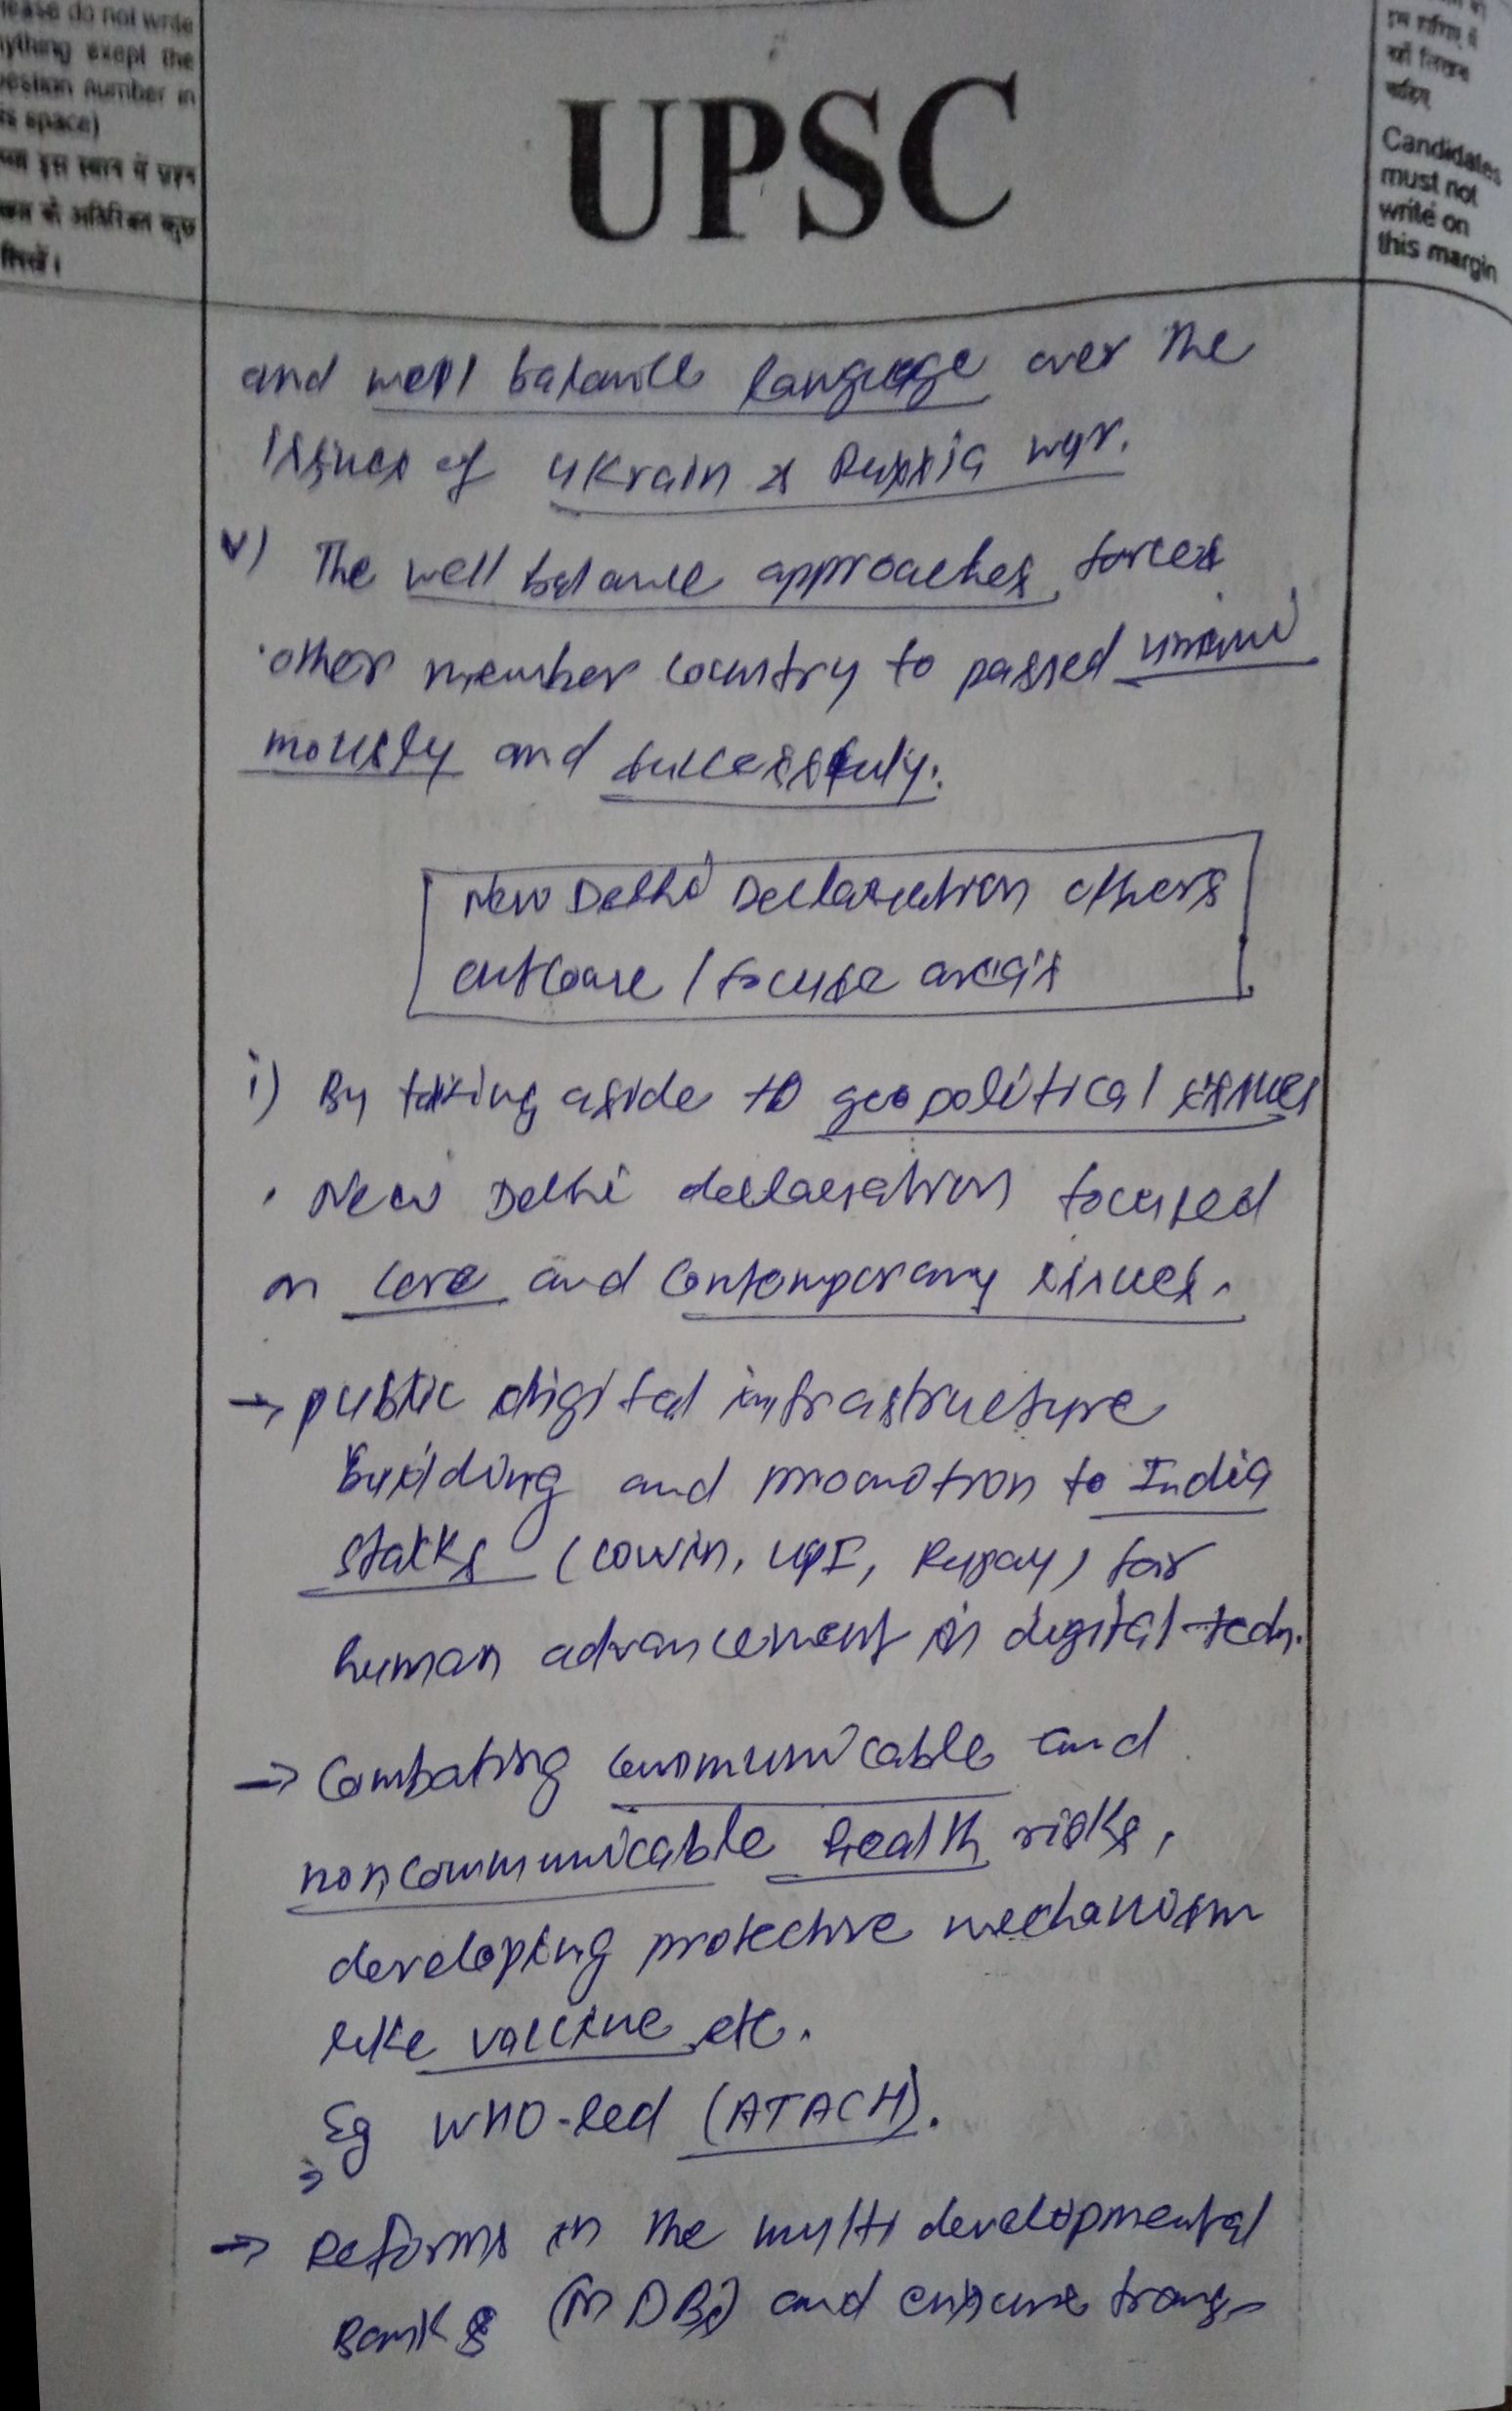 lease do not write
nything exept the
uestion number in
is space)
इस स्थान में प्रश्न
के अतिरिक्त कुछ
लिखें।
UPSC
Candidates
must not
write on
this margin
and well balance language over the
issues of Ukrain & Russia war.
v) The well balance approaches forces
other member country to passed unani
mously and successfuly.
New Delhi Declaration others
outcome / focuse areas
i) By taking aside to geopolitical issues
New Delhi declaration focused
on core and contemporary issues.
→ public digital infrastructure
building and promotion to India
stacks (cowin, UPI, Rupay) for
human advancement in digital tech.
→ Combating communicable and
noncommunicable health risks,
developing protective mechanism
like vaccine etc.
Eg WHO-led (ATACH).
→ Reforms in the multi developmental
Banks (MDBs) and ensure trans-